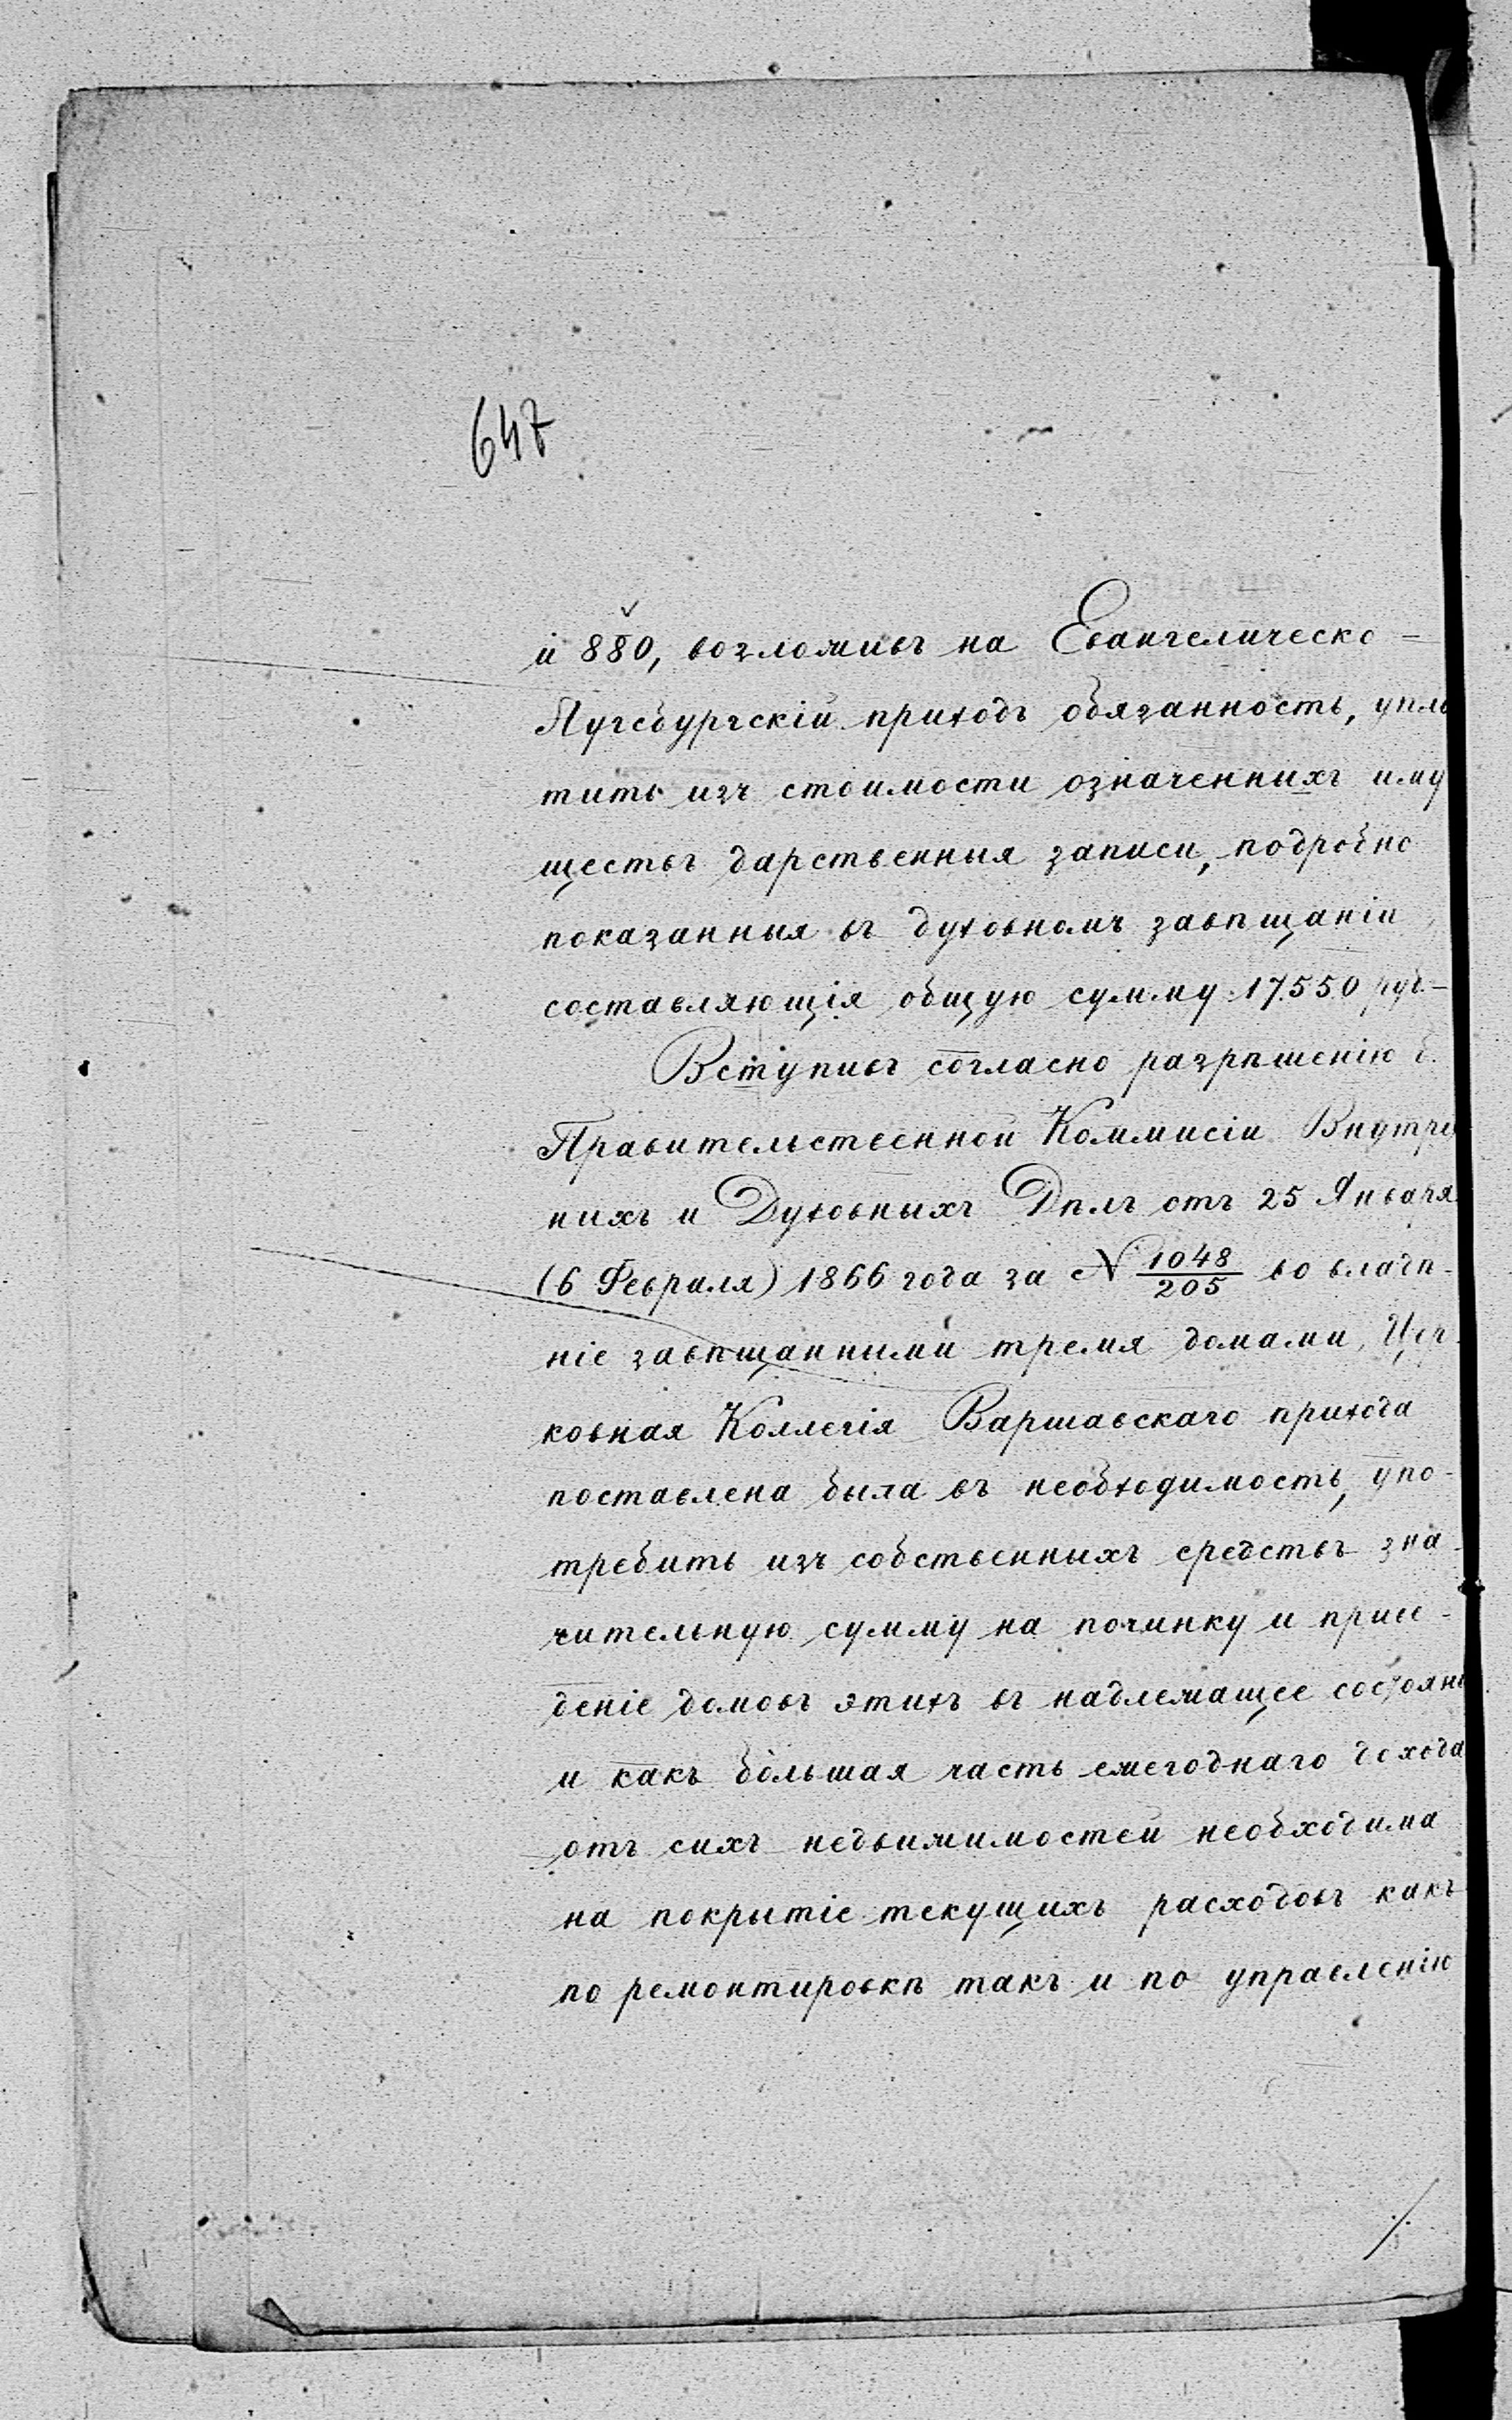 647
и 880, возложивъ на Евангелическо-
Аугсбургскій приходъ обязанность, упла
тить изъ стоимости означенныхъ иму
ществъ дарственныя записи, подробно
показанныя въ духовномъ завѣщаніи
составляющія общую сумму 17550 руб.-
Вступивъ согласно разрѣшенію б.
Правительственной Коммисіи Внутре
нихъ и Духовныхъ Дѣлъ отъ 25 Января
(6 Февраля) 1866 года за № 1048/205 во владѣ-
ніе завѣщанными тремя домами, Цер-
ковная Коллегія Варшавскаго прихода
поставлена была въ необходимость, упо-
требить изъ собственныхъ средствъ зна-
чительную сумму на починку и приве-
деніе домовъ этихъ въ надлежащее состояні
и какъ большая часть ежегоднаго дохода
отъ сихъ недвижимостей необходима
на покрытіе текущихъ расходовъ какъ
по ремонтировкѣ такъ и по управленію
./.